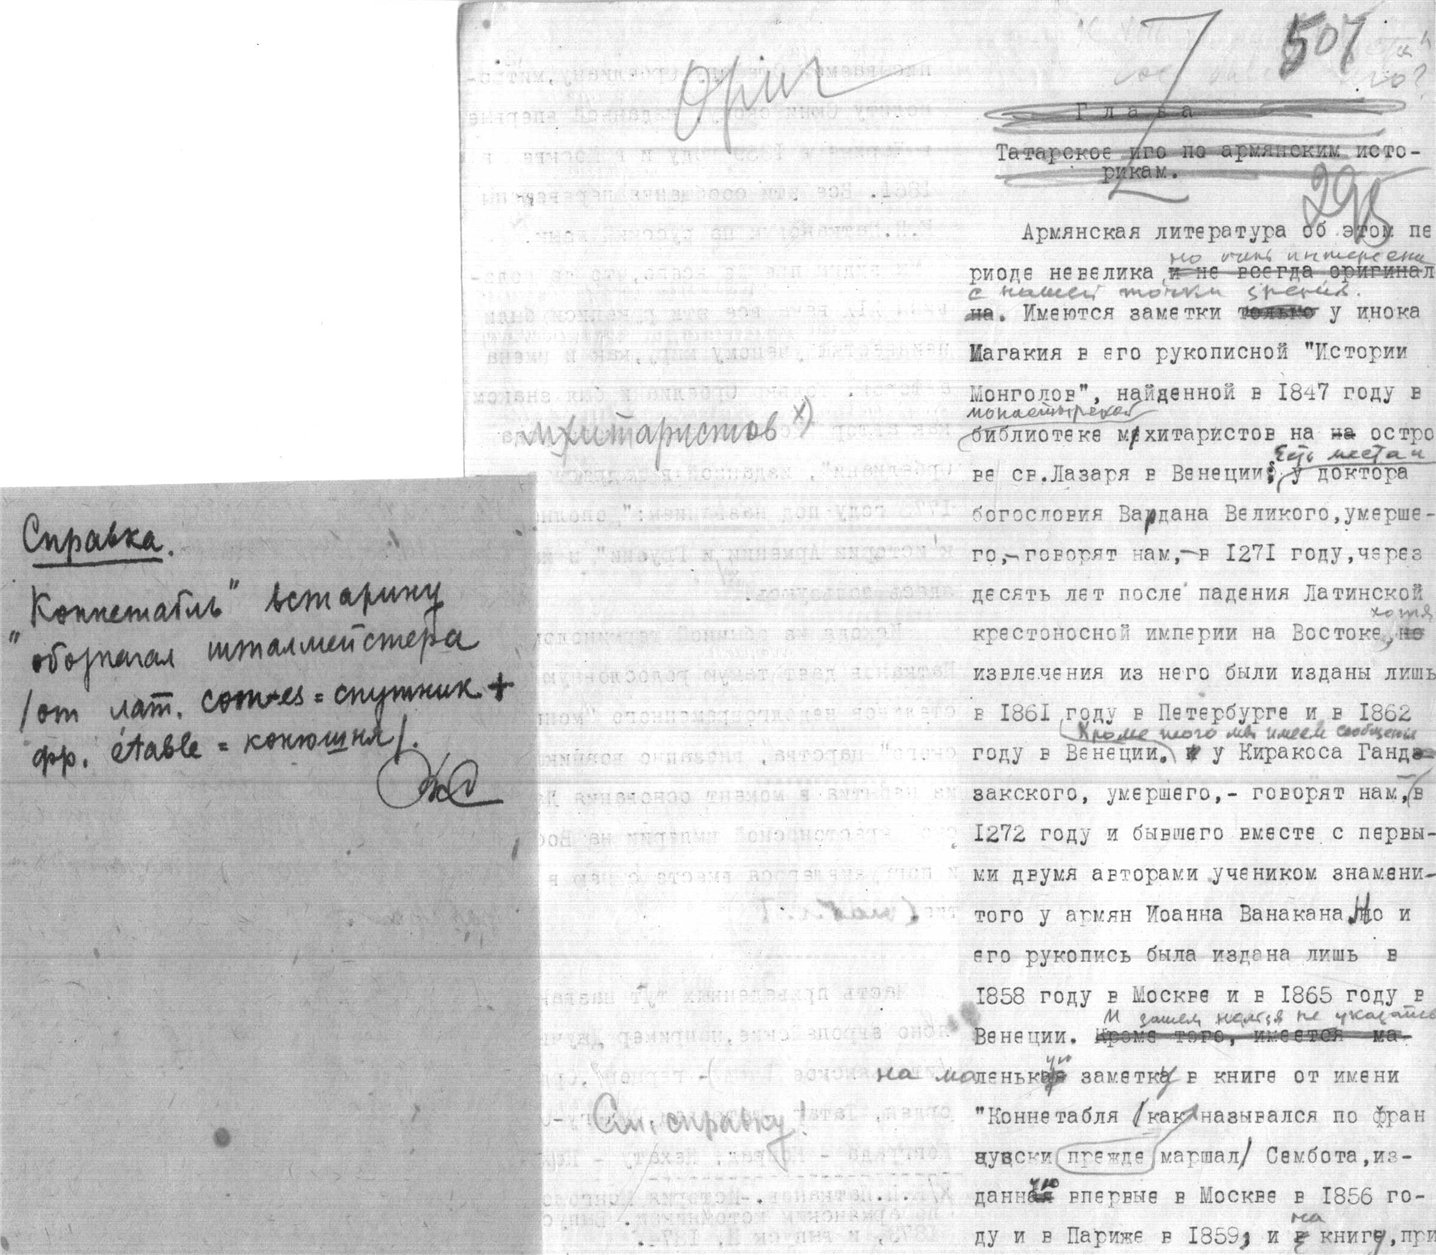 507
Ориг
Глава
Татарское иго по армянским исто-
рикам.
295
Армянская литература об этом пе
но очень интересна
риоде невелика и не всегда оригинал
с нашей точки зрения.
на. Имеются заметки только у инока
Магакия в его рукописной "Истории
Монголов", найденной в 1847 году в
монастырской
библиотеке мхитаристов на на остро
мхитаристов х)
Есть места и
ве св.Лазаря в Венеции; у доктора
богословия Вардана Великого,умерше-
го,-говорят нам,-в 1271 году,через
десять лет после падения Латинской
хотя
крестоносной империи на Востоке, но
извлечения из него были изданы лишь
в 1861 году в Петербурге и в 1862
Кроме того мы имеем сообщения
году в Венеции. и у Киракоса Ганд
закского, умершего,- говорят нам,-в
1272 году и бывшего вместе с первы-
ми двумя авторами учеником знамени-
того у армян Иоанна Ванакана. Но и
его рукопись была издана лишь в
1858 году в Москве и в 1865 году в
И затем нельзя не указать
Венеции. Кроме того, имеется ма-
на маленькую заметку в книге от имени
"Коннетабля /как назывался по фран
См. справку!
цузски прежде маршал/ Сембота,из-
данную впервые в Москве в 1856 го-
на
ду и в Париже в 1859, и в книге,при
Справка.
"Коннетабль" встарину
обозначал шталмейстера
/от лат. com-es = спутник +
фр. étable = конюшня/.